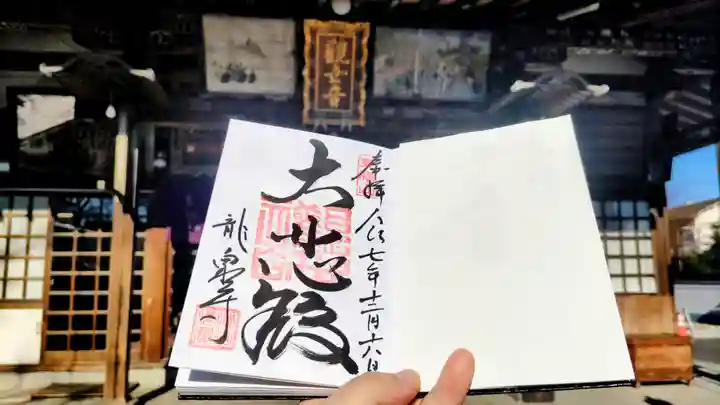 観世音
奉拝
令和七年十二月十六日
大悲殿
龍泉寺